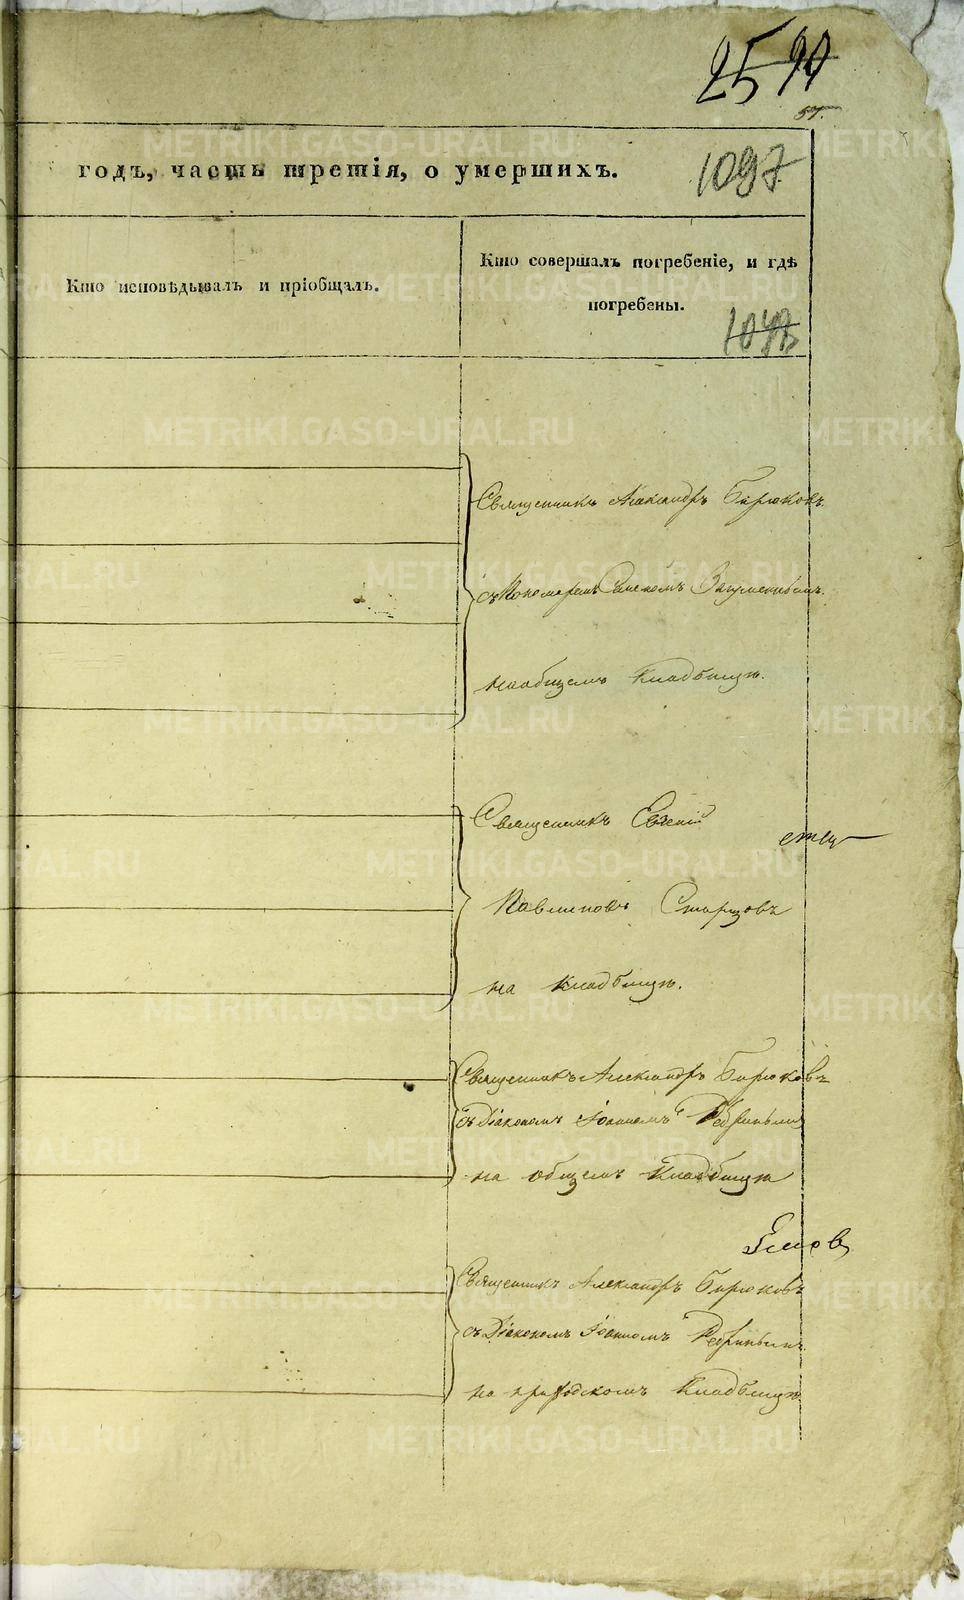 25
57.
годъ, часть третія, о умершихъ.
1097
Кто исповѣдывалъ и пріобщалъ.
Кто совершалъ погребеніе, и гдѣ
погребены.
Священникъ Александръ Бирюковъ
съ Пономаремъ
на общемъ Кладбищѣ.
Священникъ Евгеній
Павлиновъ Старцовъ
на Кладбищѣ.
Священникъ Александръ Бирюковъ
съ Діакономъ Іоанномъ
на общемъ Кладбищѣ
Священникъ Александръ Бирюковъ
съ Діакономъ Іоанномъ
на приходскомъ Кладбищѣ
METRIKI.GASO-URAL.RU